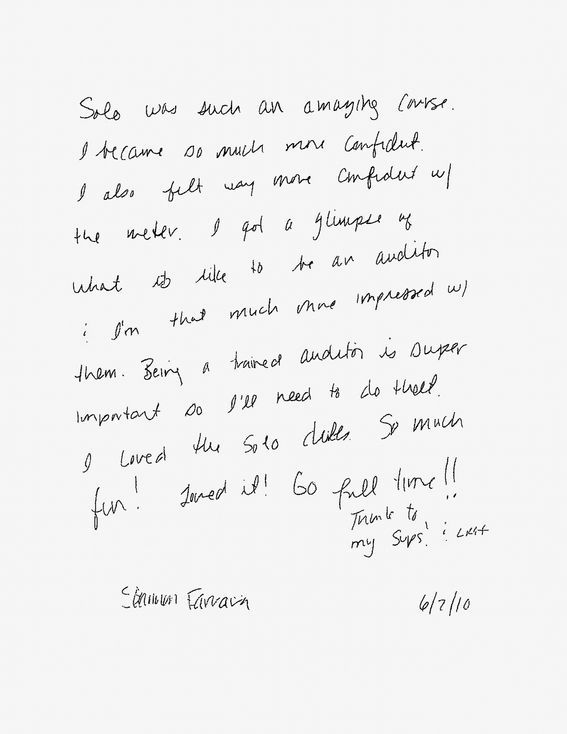 Solo was such an amazing course.
I became so much more confident.
I also felt way more confident w/
the meter. I got a glimpse of
what its like to be an auditor
& I'm that much more impressed w/
them. Being a trained auditor is super
important so I'll need to do that.
I Loved the Solo drills. So much
fun! Loved it! Go full time!!
Thanks to
my Sups! &
6/2/10